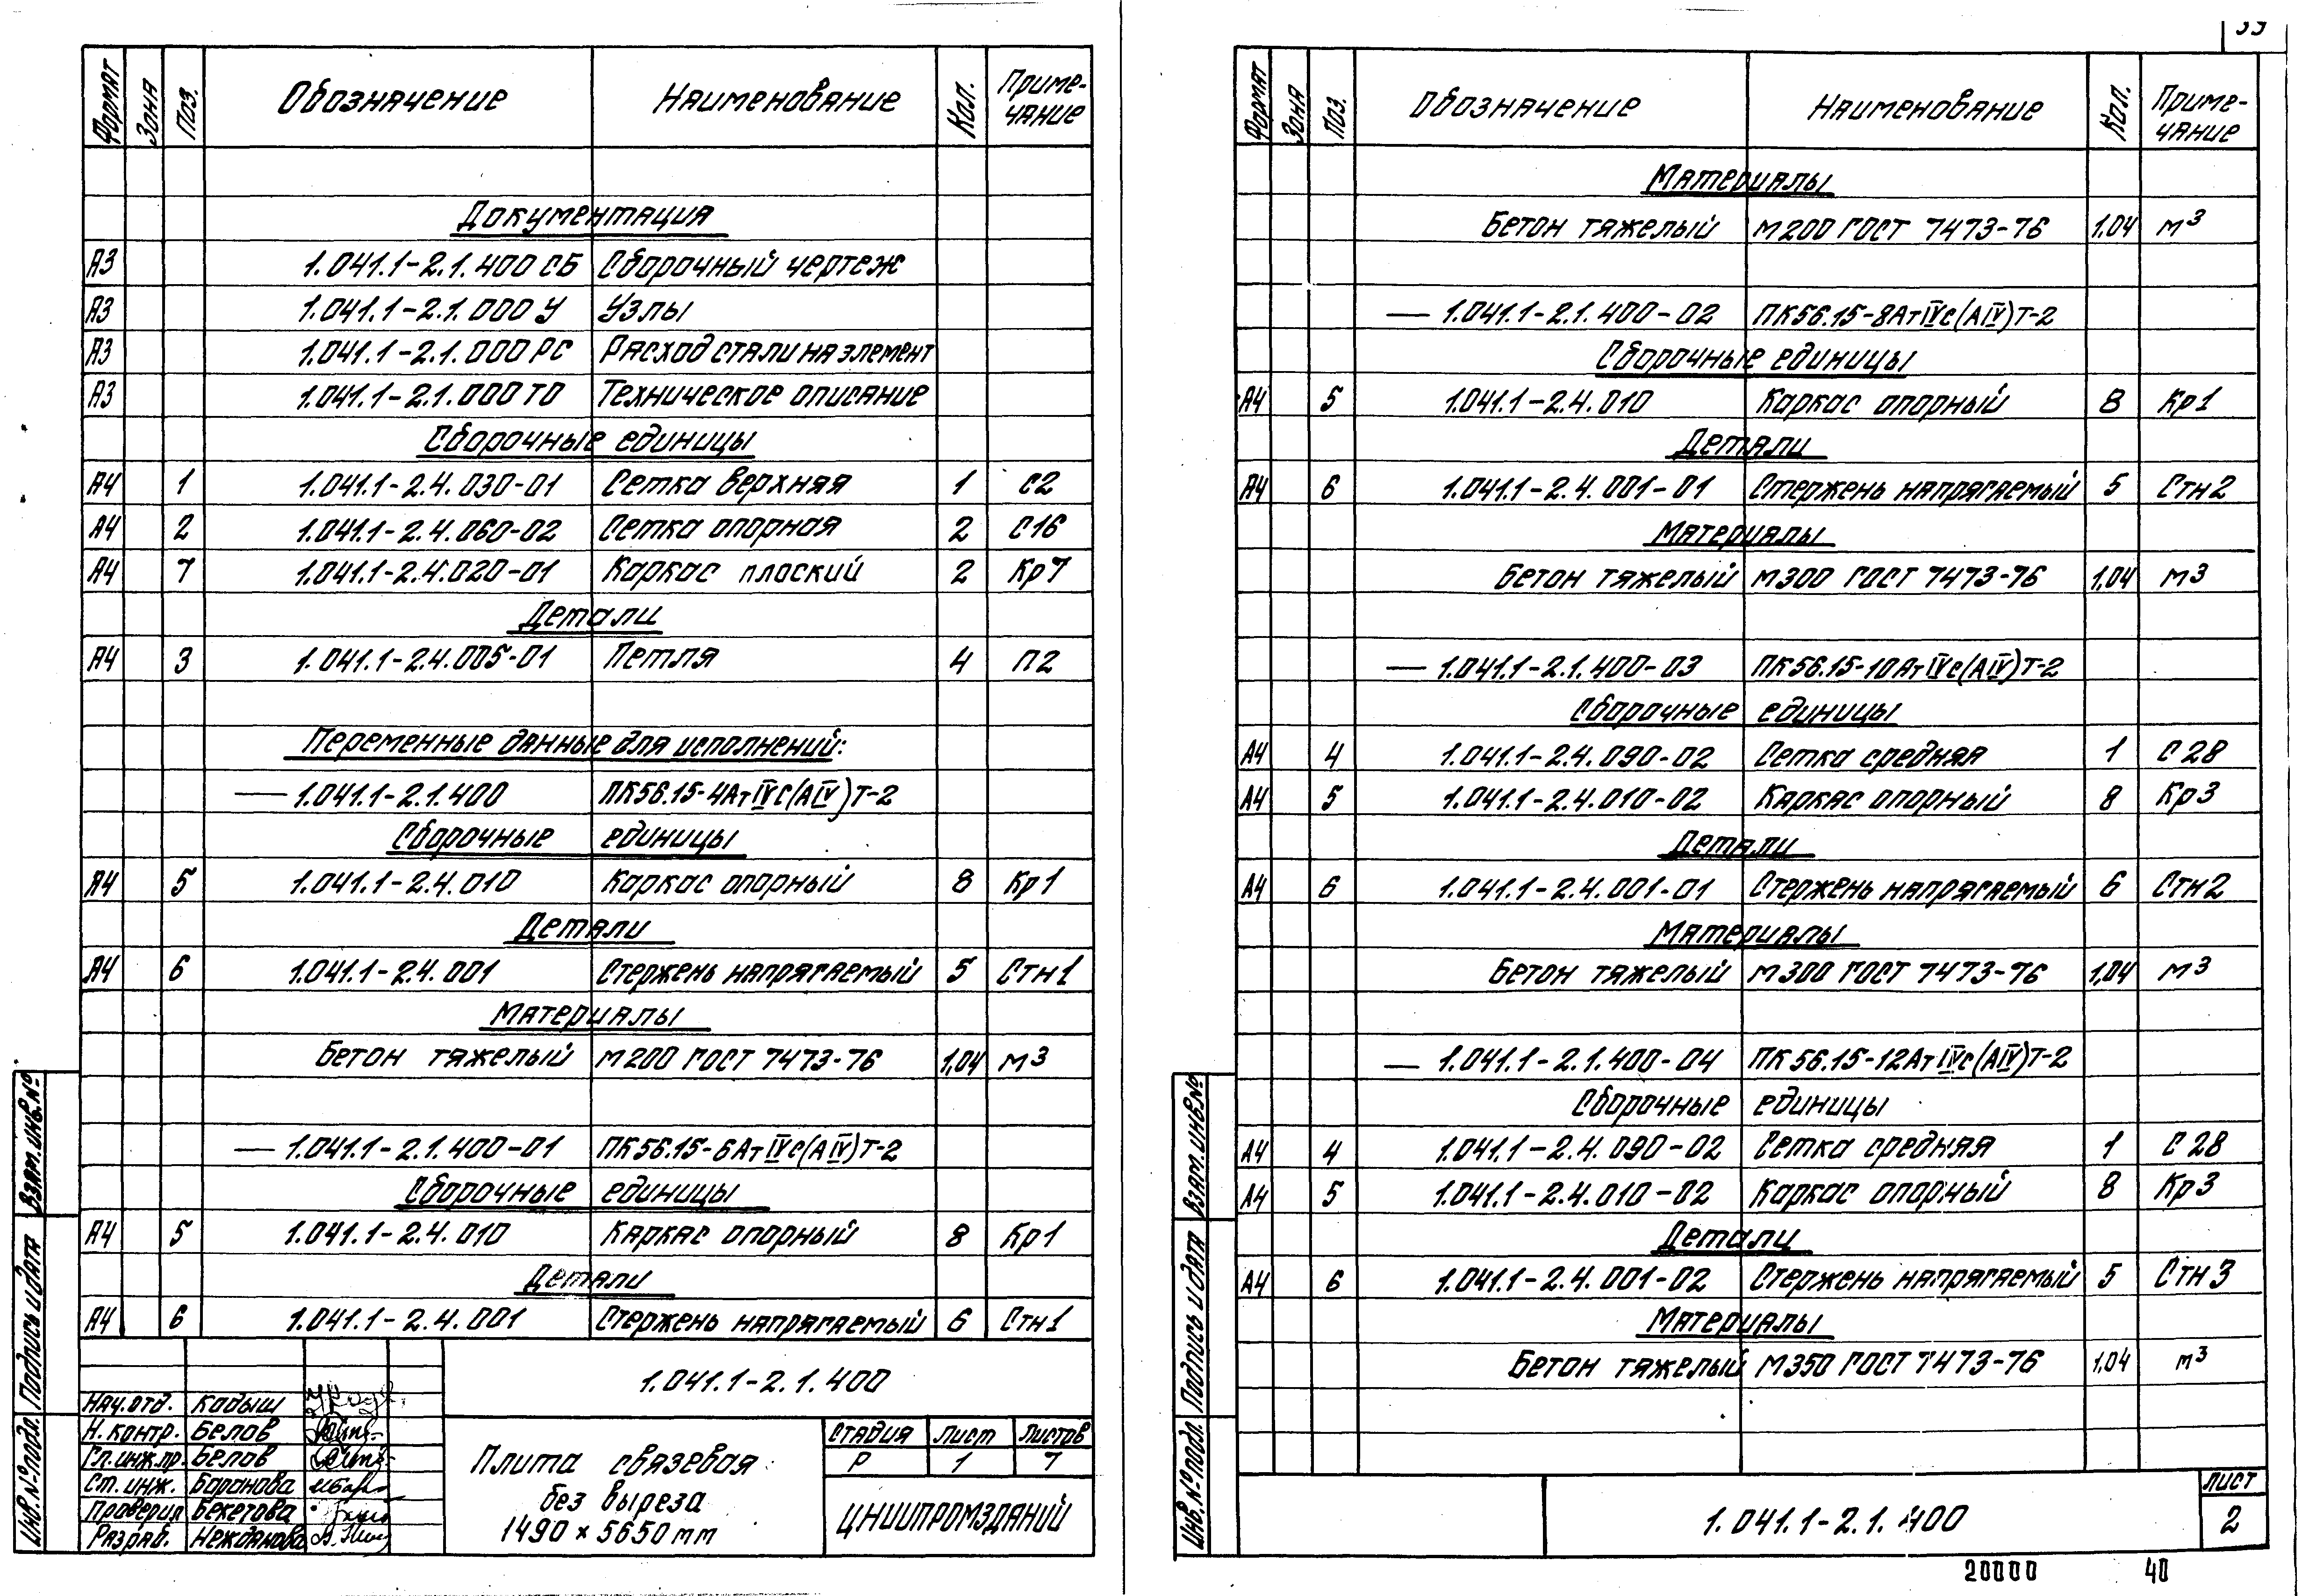 Формат Зона Поз. Обозначение Наименование Кол. Приме-
чание
Документация
А3 1.041.1-2.1.400 СБ Сборочный чертеж
А3 1.041.1-2.1.000 У Узлы
А3 1.041.1-2.1.000 РС Расход стали на элемент
А3 1.041.1-2.1.000 ТО Техническое описание
Сборочные единицы
А4 1 1.041.1-2.4.030-01 Сетка верхняя 1 С2
А4 2 1.041.1-2.4.060-02 Сетка опорная 2 С16
А4 7 1.041.1-2.4.020-01 Каркас плоский 2 Кр7
Детали
А4 3 1.041.1-2.4.005-01 Петля 4 П2
Переменные данные для исполнений:
— 1.041.1-2.1.400 ПК56.15-4АтIVС(АIV)Т-2
Сборочные единицы
А4 5 1.041.1-2.4.010 Каркас опорный 8 Кр1
Детали
А4 6 1.041.1-2.4.001 Стержень напрягаемый 5 Стн1
Материалы
Бетон тяжелый М200 ГОСТ 7473-76 1,04 м3
— 1.041.1-2.1.400-01 ПК56.15-6АтIVС(АIV)Т-2
Сборочные единицы
А4 5 1.041.1-2.4.010 Каркас опорный 8 Кр1
Детали
А4 6 1.041.1-2.4.001 Стержень напрягаемый 6 Стн1
Взам. инв. №
Подпись и дата
Инв. № подл.
1.041.1-2.1.400
Нач. отд. Кодыш
Н. контр. Белов
Гл. инж. пр. Белов
Ст. инж. Баранова
Проверил Бекетова
Разраб. Нежданова
Плита связевая
без выреза
1490 × 5650 мм
Стадия Лист Листов
Р 1 7
ЦНИИПРОМЗДАНИЙ
39
Формат Зона Поз. Обозначение Наименование Кол. Приме-
чание
Материалы
Бетон тяжелый М200 ГОСТ 7473-76 1,04 м3
— 1.041.1-2.1.400-02 ПК56.15-8АтIVС(АIV)Т-2
Сборочные единицы
А4 5 1.041.1-2.4.010 Каркас опорный 8 Кр1
Детали
А4 6 1.041.1-2.4.001-01 Стержень напрягаемый 5 Стн2
Материалы
Бетон тяжелый М300 ГОСТ 7473-76 1,04 м3
— 1.041.1-2.1.400-03 ПК56.15-10АтIVС(АIV)Т-2
Сборочные единицы
А4 4 1.041.1-2.4.090-02 Сетка средняя 1 С28
А4 5 1.041.1-2.4.010-02 Каркас опорный 8 Кр3
Детали
А4 6 1.041.1-2.4.001-01 Стержень напрягаемый 6 Стн2
Материалы
Бетон тяжелый М300 ГОСТ 7473-76 1,04 м3
— 1.041.1-2.1.400-04 ПК56.15-12АтIVС(АIV)Т-2
Сборочные единицы
А4 4 1.041.1-2.4.090-02 Сетка средняя 1 С28
А4 5 1.041.1-2.4.010-02 Каркас опорный 8 Кр3
Детали
А4 6 1.041.1-2.4.001-02 Стержень напрягаемый 5 Стн3
Материалы
Бетон тяжелый М350 ГОСТ 7473-76 1,04 м3
Взам. инв. №
Подпись и дата
Инв. № подл.
1.041.1-2.1.400
Лист
2
20000 40